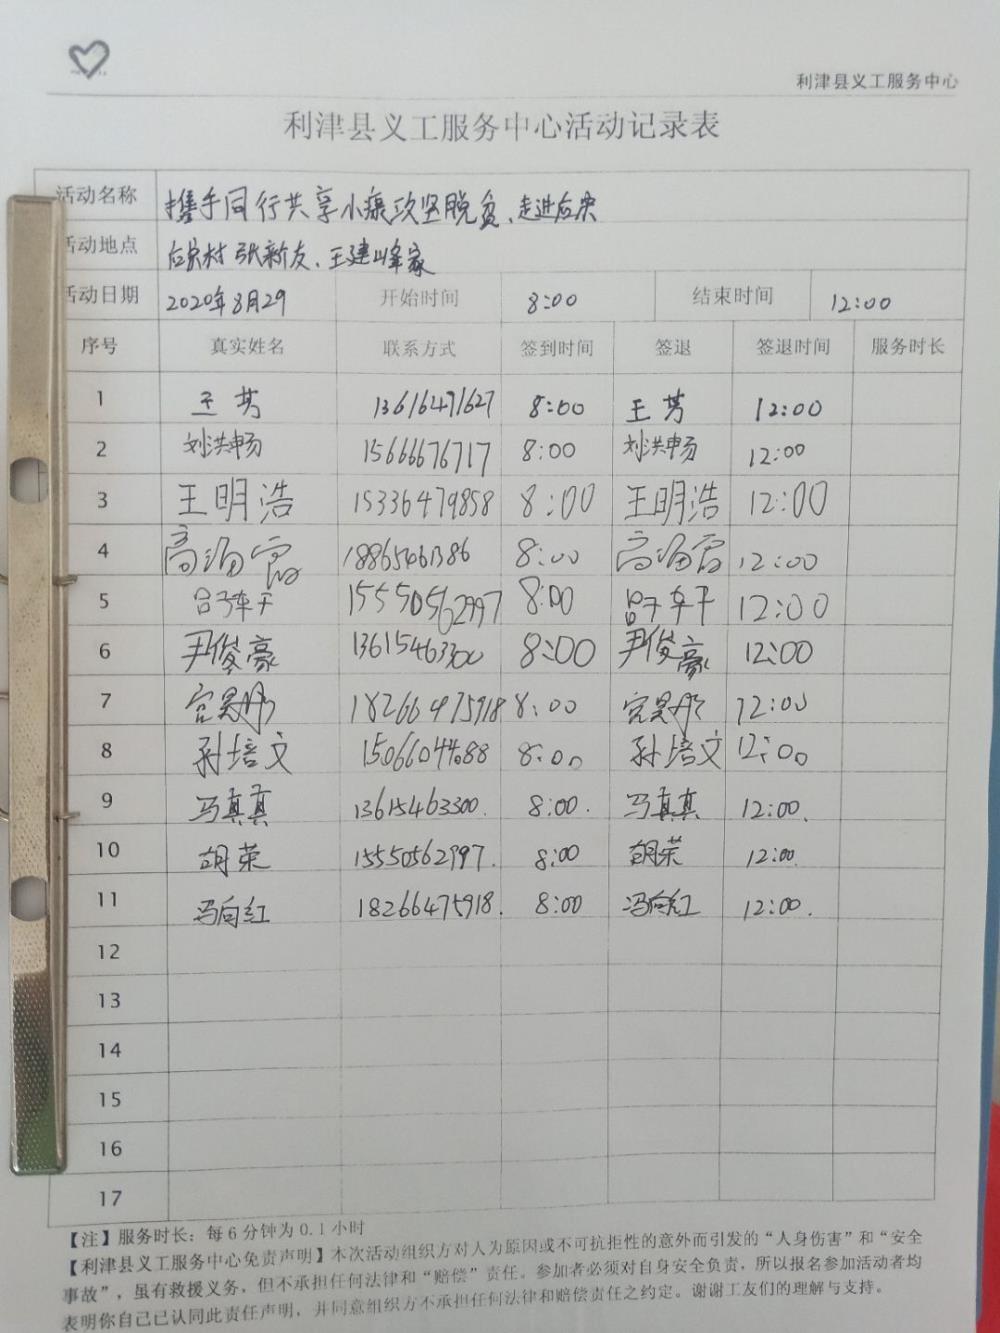 利津县义工服务中心
利津县义工服务中心活动记录表
活动名称 携手同行共享小康攻坚脱贫、走进后宋
活动地点 后宋村 张新友、王建峰家
活动日期 2020年8月29 开始时间 8:00 结束时间 12:00
序号 真实姓名 联系方式 签到时间 签退 签退时间 服务时长
1 王芳 13616471627 8:00 王芳 12:00
2 刘洪畅 15666676717 8:00 刘洪畅 12:00
3 王明浩 15336479858 8:00 王明浩 12:00
4 18865461386 8:00 12:00
5 15550562997 8:00 12:00
6 尹俊豪 13615463300 8:00 尹俊豪 12:00
7 18266475918 8:00 12:00
8 孙培文 15066044688 8:00 孙培文 12:00
9 冯真真 13615463300. 8:00. 冯真真 12:00.
10 胡荣 15550562997. 8:00 胡荣 12:00.
11 冯向红 18266475918. 8:00 冯向红 12:00.
12
13
14
15
16
17
【注】服务时长：每6分钟为0.1小时
【利津县义工服务中心免责声明】本次活动组织方对人为原因或不可抗拒性的意外而引发的“人身伤害”和“安全
事故”，虽有救援义务，但不承担任何法律和“赔偿”责任。参加者必须对自身安全负责，所以报名参加活动者均
表明你自己已认同此责任声明，并同意组织方不承担任何法律和赔偿责任之约定。谢谢工友们的理解与支持。